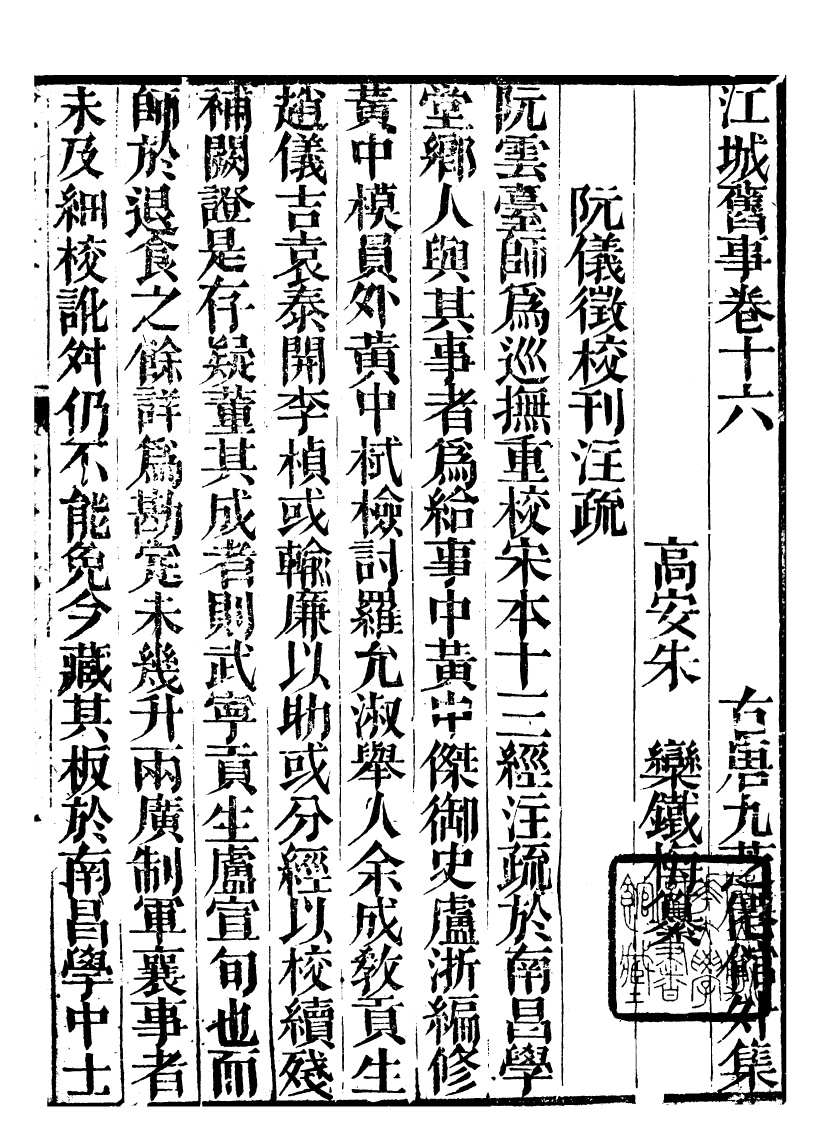 江城舊事卷十六　古唐九芝僊館外集
高安朱　欒鐵梅纂
阮儀徵校刊注疏
阮雲臺師爲巡撫重校宋本十三經注疏於南昌學
堂鄉人與其事者爲給事中黃中傑御史盧浙編修
黃中模員外黃中栻檢討羅允淑舉人余成敎貢生
趙儀吉袁泰開李楨或輸廉以助或分經以校續殘
補闕證是存疑董其成者則武寧貢生盧宣旬也而
師於退食之餘詳爲勘定未幾升兩廣制軍襄事者
未及細校訛舛仍不能免今藏其板於南昌學中士